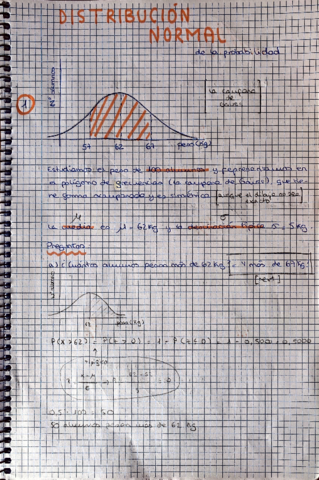 DISTRIBUCIÓN
NORMAL
de la probabilidad
1
nº alumnos
la campana
de
Gauss
57 62 67 peso (kg)
Estudiamos el peso de 100 alumnos y representamos en
un polígono de frecuencias (la campana de Gauss), que tiene
forma acampanada y es simétrica
μ σ
La media es μ = 62 kg y la desviación típica σ = 5 kg.
Preguntas:
a) ¿Cuántos alumnos pesan más de 62 kg?
nº alumnos
62 peso (kg)
P(X>62) = P(Z>0) = 1 - P(Z≤0) = 1 - 0,5000 = 0,5000
0,5 · 100 = 50
50 alumnos pesan más de 62 kg